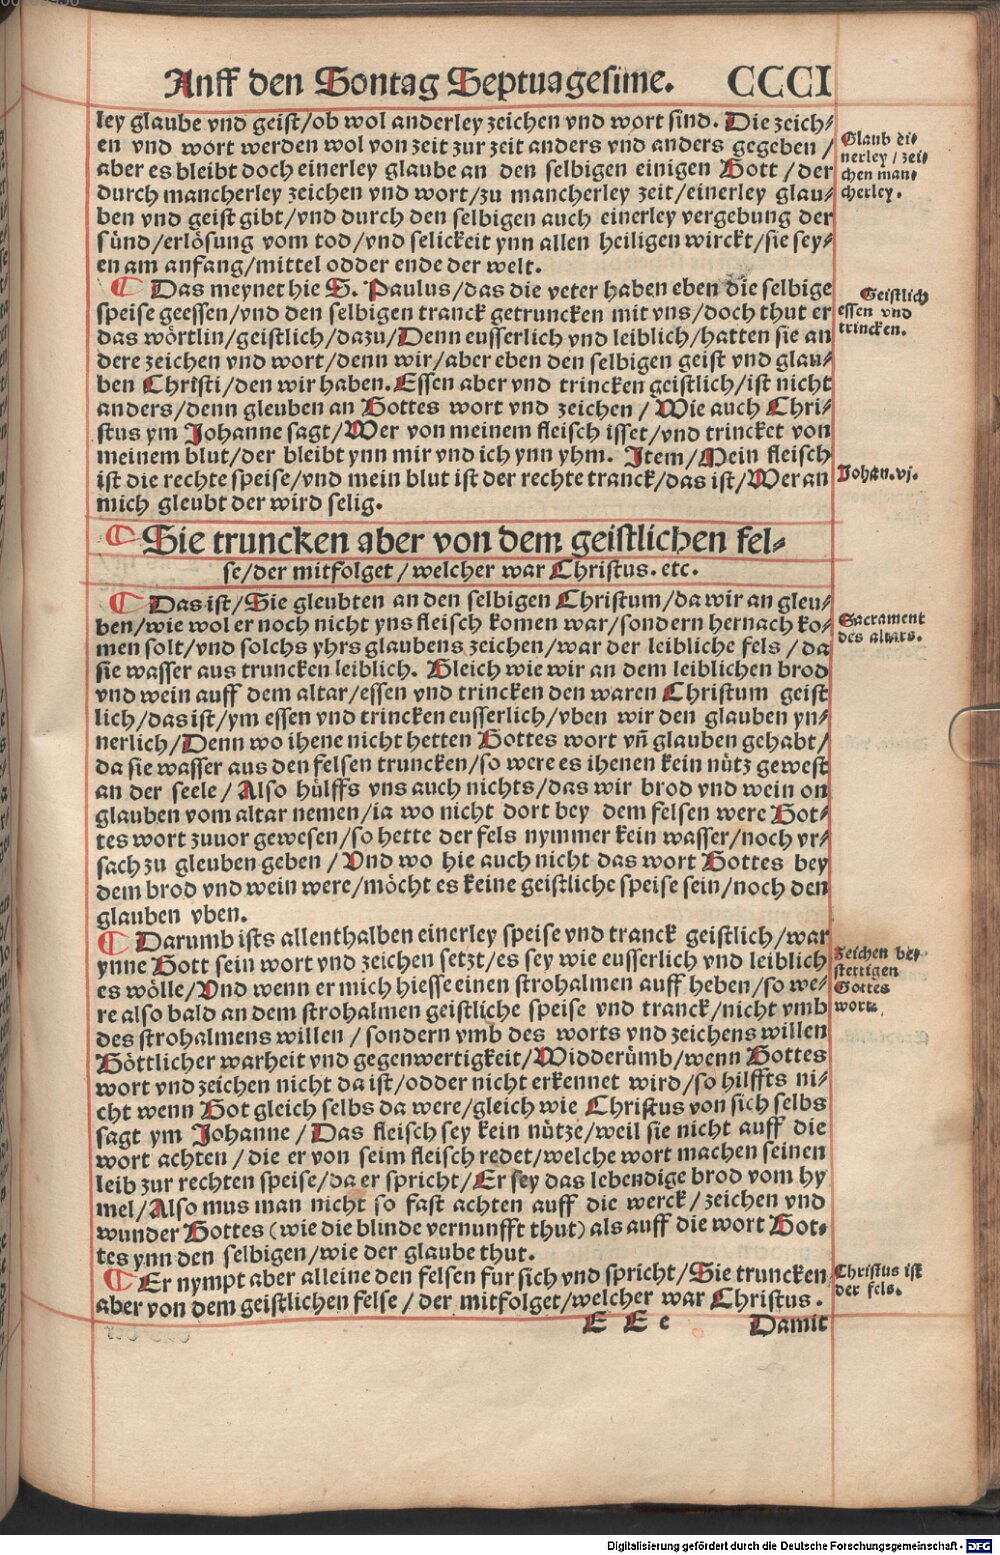 Auff den Sontag Septuagesime. CCCI
ley glaube vnd geist/ob wol anderley zeichen vnd wort sind. Die zeich⸗
en vnd wort werden wol von zeit zur zeit anders vnd anders gegeben/
aber es bleibt doch einerley glaube an den selbigen einigen Gott/der
durch mancherley zeichen vnd wort/zu mancherley zeit/einerley glau⸗
ben vnd geist gibt/vnd durch den selbigen auch einerley vergebung der
sünd/erlösung vom tod/vnd selickeit ynn allen heiligen wirckt/sie sey⸗
en am anfang/mittel odder ende der welt.
Glaub ei⸗
nerley/zei⸗
chen man⸗
cherley.
Das meynet hie S. Paulus/das die veter haben eben die selbige
speise geessen/vnd den selbigen tranck getruncken mit vns/doch thut er
das wörtlin/geistlich/dazu/Denn eusserlich vnd leiblich/hatten sie an
dere zeichen vnd wort/denn wir/aber eben den selbigen geist vnd glau⸗
ben Christi/den wir haben. Essen aber vnd trincken geistlich/ist nicht
anders/denn gleuben an Gottes wort vnd zeichen/Wie auch Chri⸗
stus ym Johanne sagt/Wer von meinem fleisch isset/vnd trincket von
meinem blut/der bleibt ynn mir vnd ich ynn yhm. Item/Mein fleisch
ist die rechte speise/vnd mein blut ist der rechte tranck/das ist/Wer an
mich gleubt der wird selig.
Geistlich
essen vnd
trincken.
Johan.vj.
Sie truncken aber von dem geistlichen fel⸗
se/der mitfolget/welcher war Christus. etc.
Das ist/Sie gleubten an den selbigen Christum/da wir an gleu⸗
ben/wie wol er noch nicht yns fleisch komen war/sondern hernach ko⸗
men solt/vnd solchs yhrs glaubens zeichen/war der leibliche fels/da
sie wasser aus truncken leiblich. Gleich wie wir an dem leiblichen brod
vnd wein auff dem altar/essen vnd trincken den waren Christum geist
lich/das ist/ym essen vnd trincken eusserlich/vben wir den glauben yn⸗
nerlich/Denn wo ihene nicht hetten Gottes wort vñ glauben gehabt/
da sie wasser aus den felsen truncken/so were es ihenen kein nütz gewest
an der seele/Also hülffs vns auch nichts/das wir brod vnd wein on
glauben vom altar nemen/ia wo nicht dort bey dem felsen were Got⸗
tes wort zuuor gewesen/so hette der fels nymmer kein wasser/noch vr⸗
sach zu gleuben geben/Vnd wo hie auch nicht das wort Gottes bey
dem brod vnd wein were/möcht es keine geistliche speise sein/noch den
glauben vben.
Sacrament
des altars.
Darumb ists allenthalben einerley speise vnd tranck geistlich/war
ynne Gott sein wort vnd zeichen setzt/es sey wie eusserlich vnd leiblich
es wölle/Vnd wenn er mich hiesse einen strohalmen auff heben/so we⸗
re also bald an dem strohalmen geistliche speise vnd tranck/nicht vmb
des strohalmens willen/sondern vmb des worts vnd zeichens willen
Göttlicher warheit vnd gegenwertigkeit/Widderümb/wenn Gottes
wort vnd zeichen nicht da ist/odder nicht erkennet wird/so hilffts ni⸗
cht wenn Got gleich selbs da were/gleich wie Christus von sich selbs
sagt ym Johanne/Das fleisch sey kein nütze/weil sie nicht auff die
wort achten/die er von seim fleisch redet/welche wort machen seinen
leib zur rechten speise/da er spricht/Er sey das lebendige brod vom hy
mel/Also mus man nicht so fast achten auff die werck/zeichen vnd
wunder Gottes (wie die blinde vernunfft thut) als auff die wort Got⸗
tes ynn den selbigen/wie der glaube thut.
Zeichen be⸗
stettigen
Gottes
wort.
Er nympt aber alleine den felsen fur sich vnd spricht/Sie truncken
aber von dem geistlichen felse/der mitfolget/welcher war Christus.
Christus ist
der fels.
E E e Damit
Digitalisierung gefördert durch die Deutsche Forschungsgemeinschaft - DFG